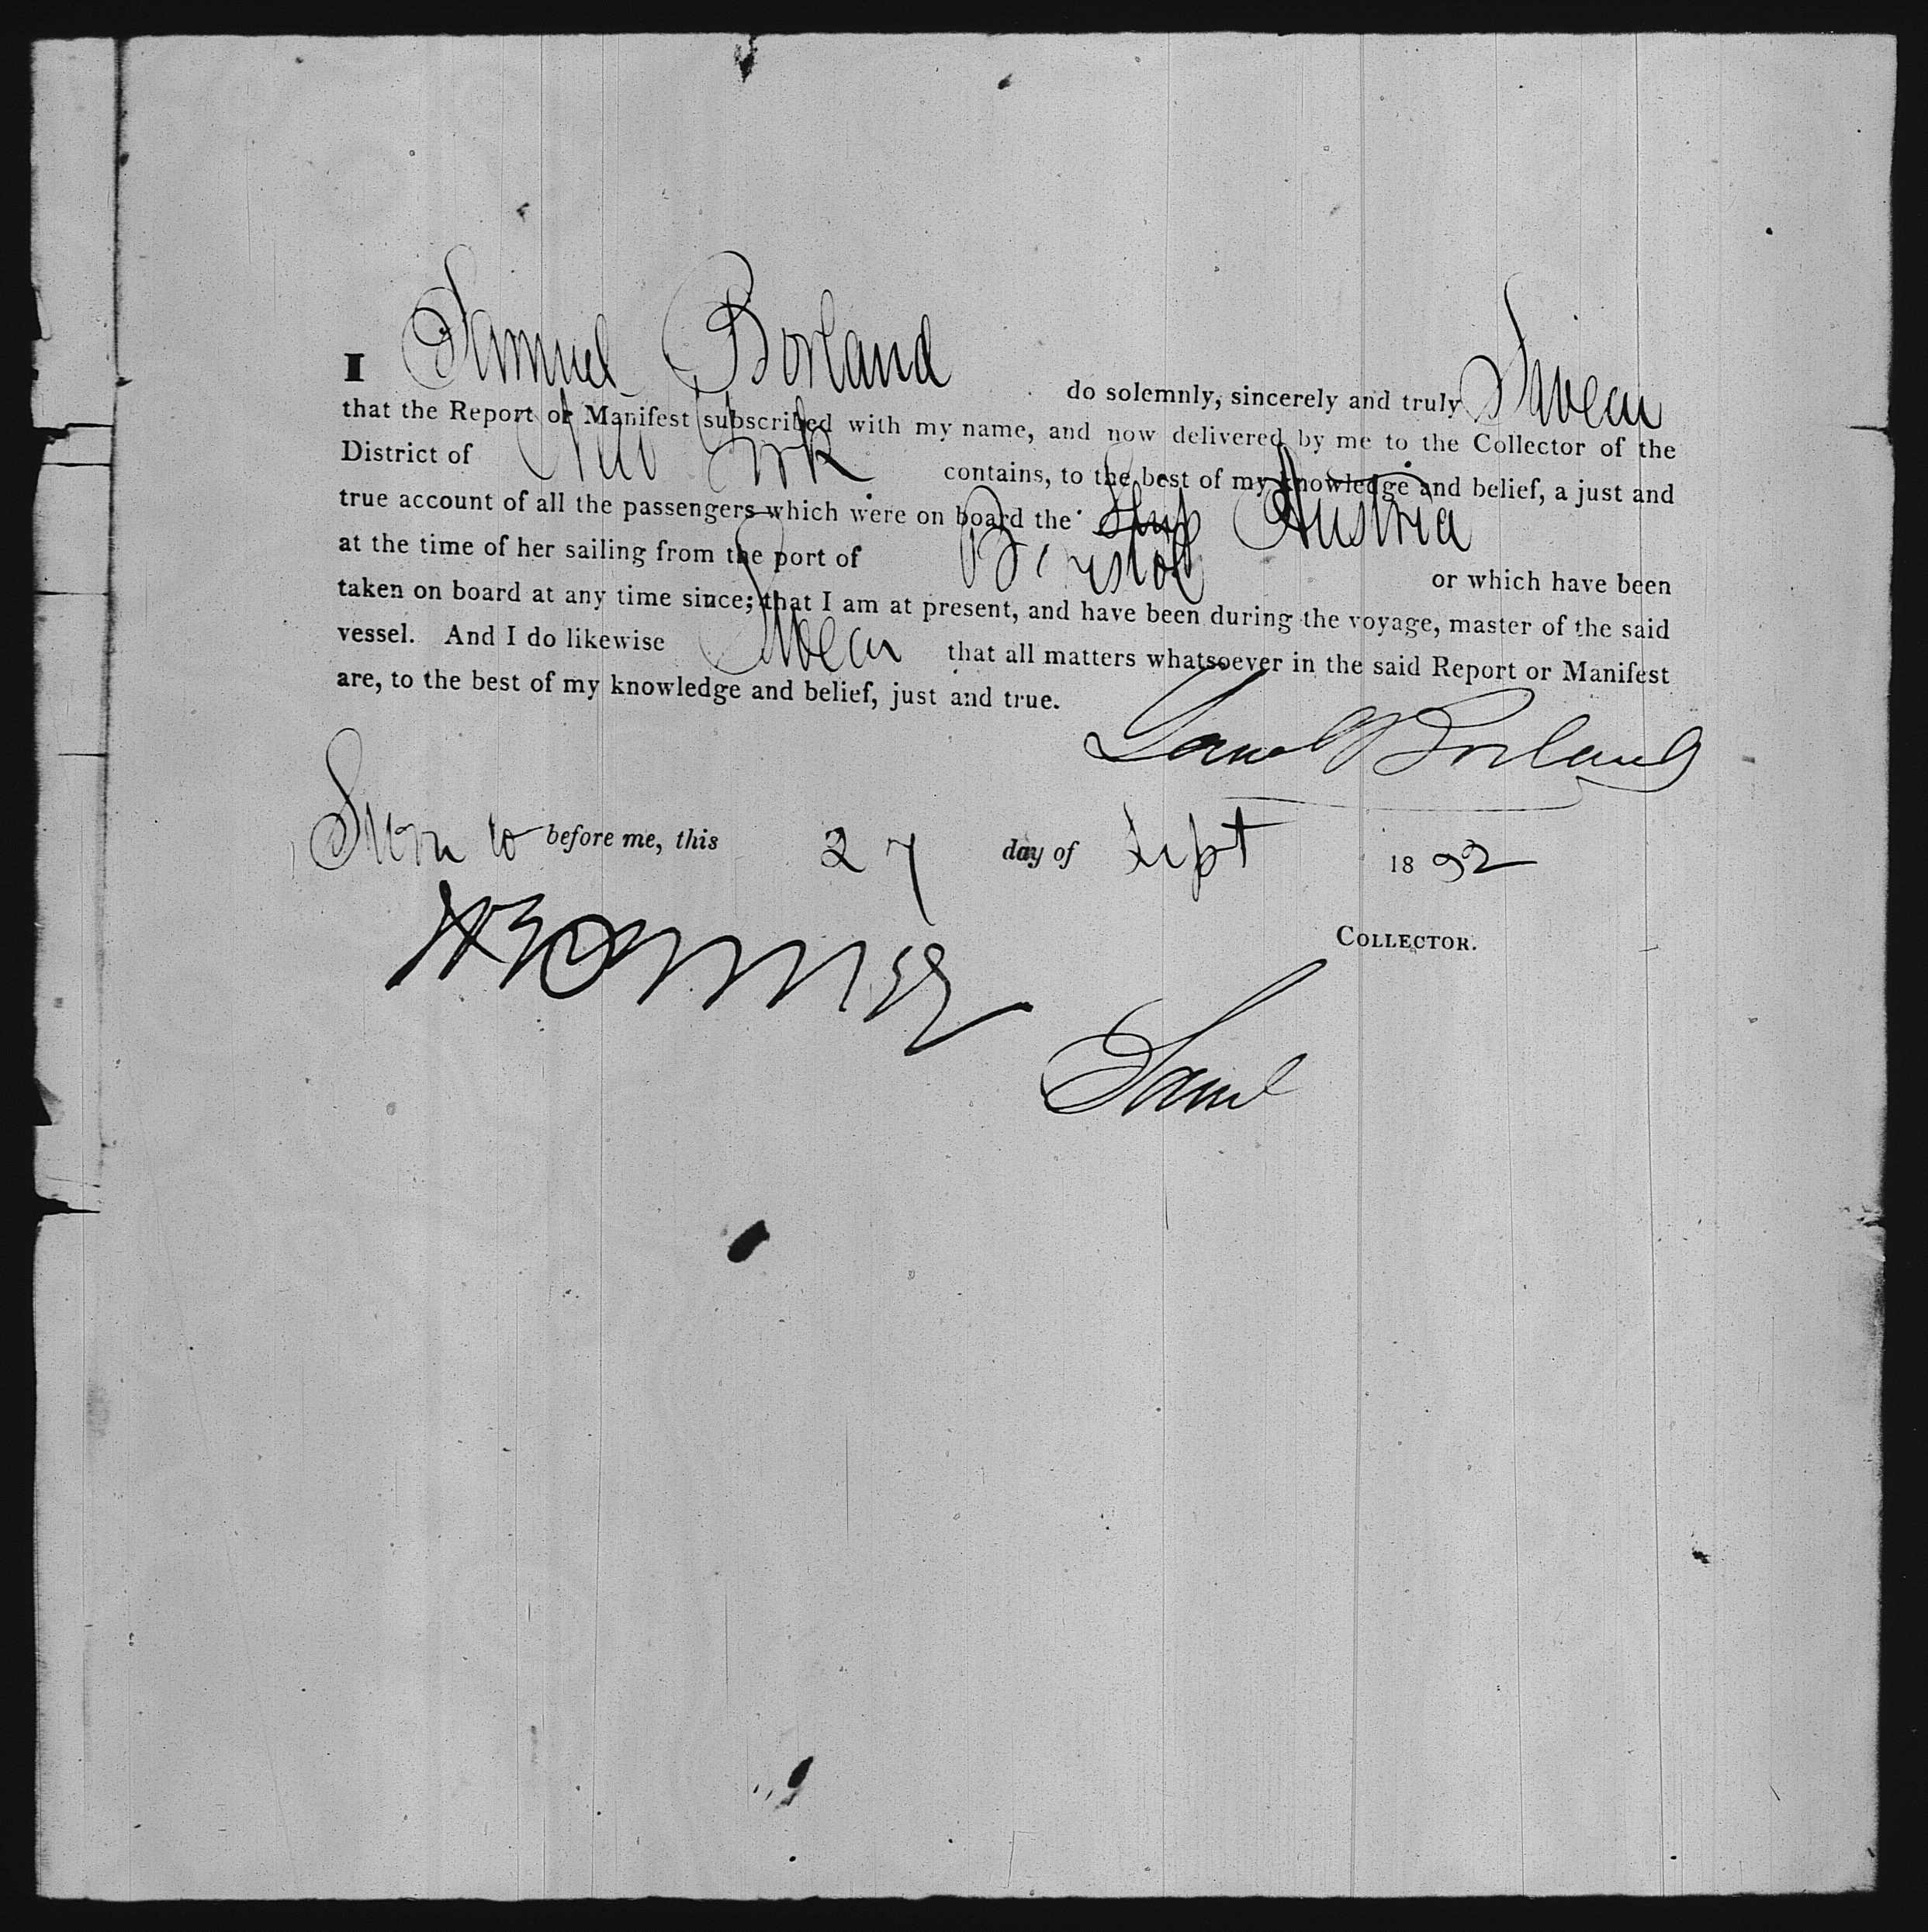 I Samuel Borland do solemnly, sincerely and truly Swear
that the Report or Manifest subscribed with my name, and now delivered by me to the Collector of the
District of New York contains, to the best of my knowledge and belief, a just and
true account of all the passengers which were on board the Ship Austria
at the time of her sailing from the port of Bristol or which have been
taken on board at any time since; that I am at present, and have been during the voyage, master of the said
vessel. And I do likewise Swear that all matters whatsoever in the said Report or Manifest
are, to the best of my knowledge and belief, just and true.
Saml Borland
Sworn to before me, this 27 day of Sept 1892
COLLECTOR.
Saml